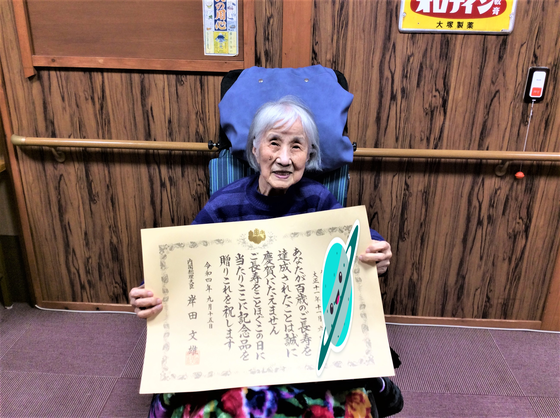 オロナイン軟膏
大塚製薬
大正十一年十一月六
あなたが百歳のご長寿を
達成されたことは誠に
慶賀にたえません
ご長寿をことほぐこの日に
当たりここに記念品を
贈りこれを祝します
令和四年九月十五日
内閣総理大臣 岸田文雄